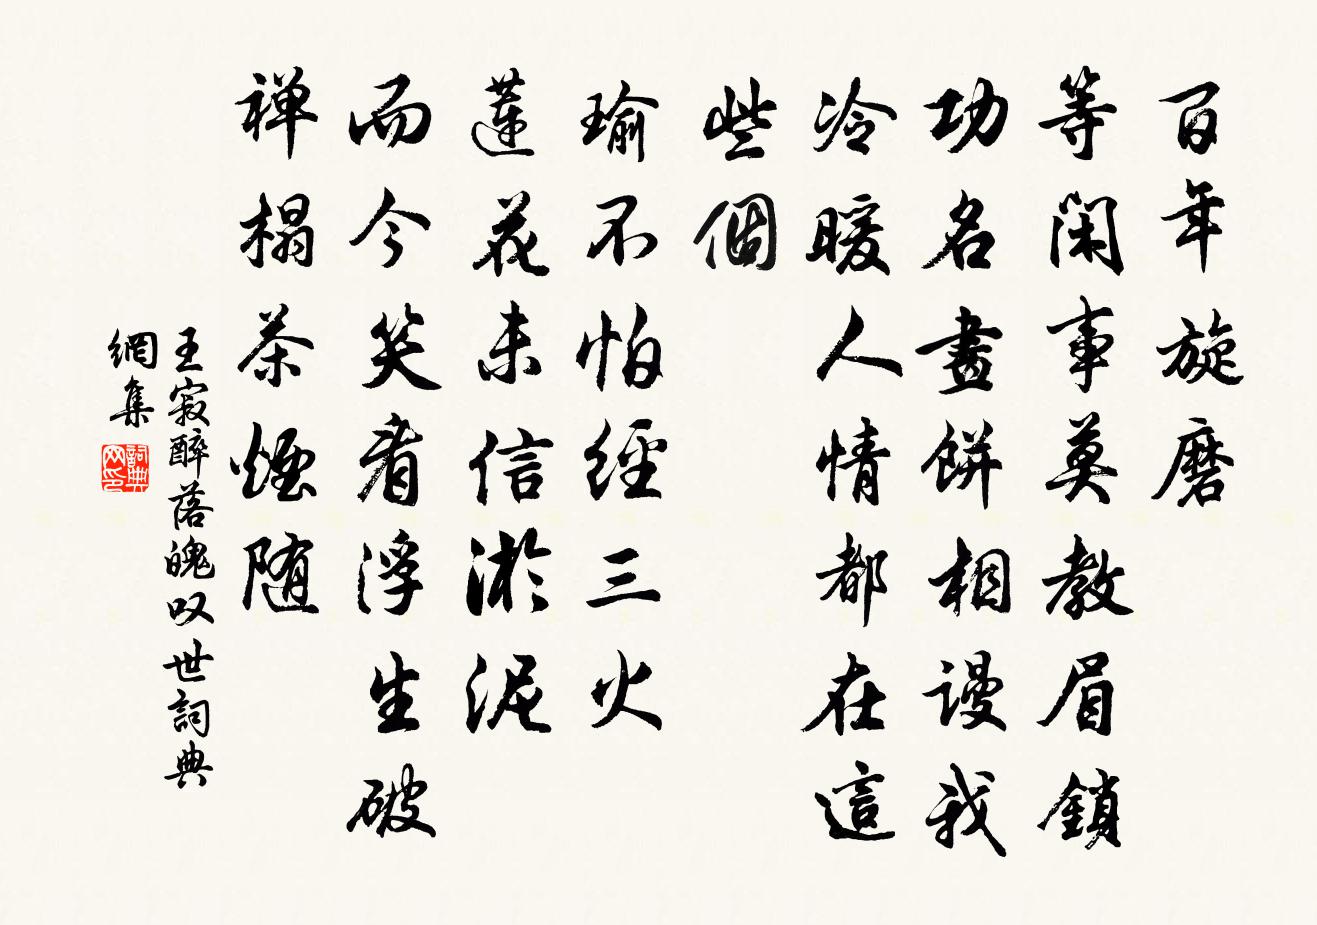 百年旋磨
等閑事莫教眉鎖
功名畫餅相謾我
冷暖人情都在這
些個
瑜不怕經三火
蓮花未信淤泥
而今笑看浮生破
禅榻茶煙随
王寂醉落魄叹世詞典
網集
詞典
网印